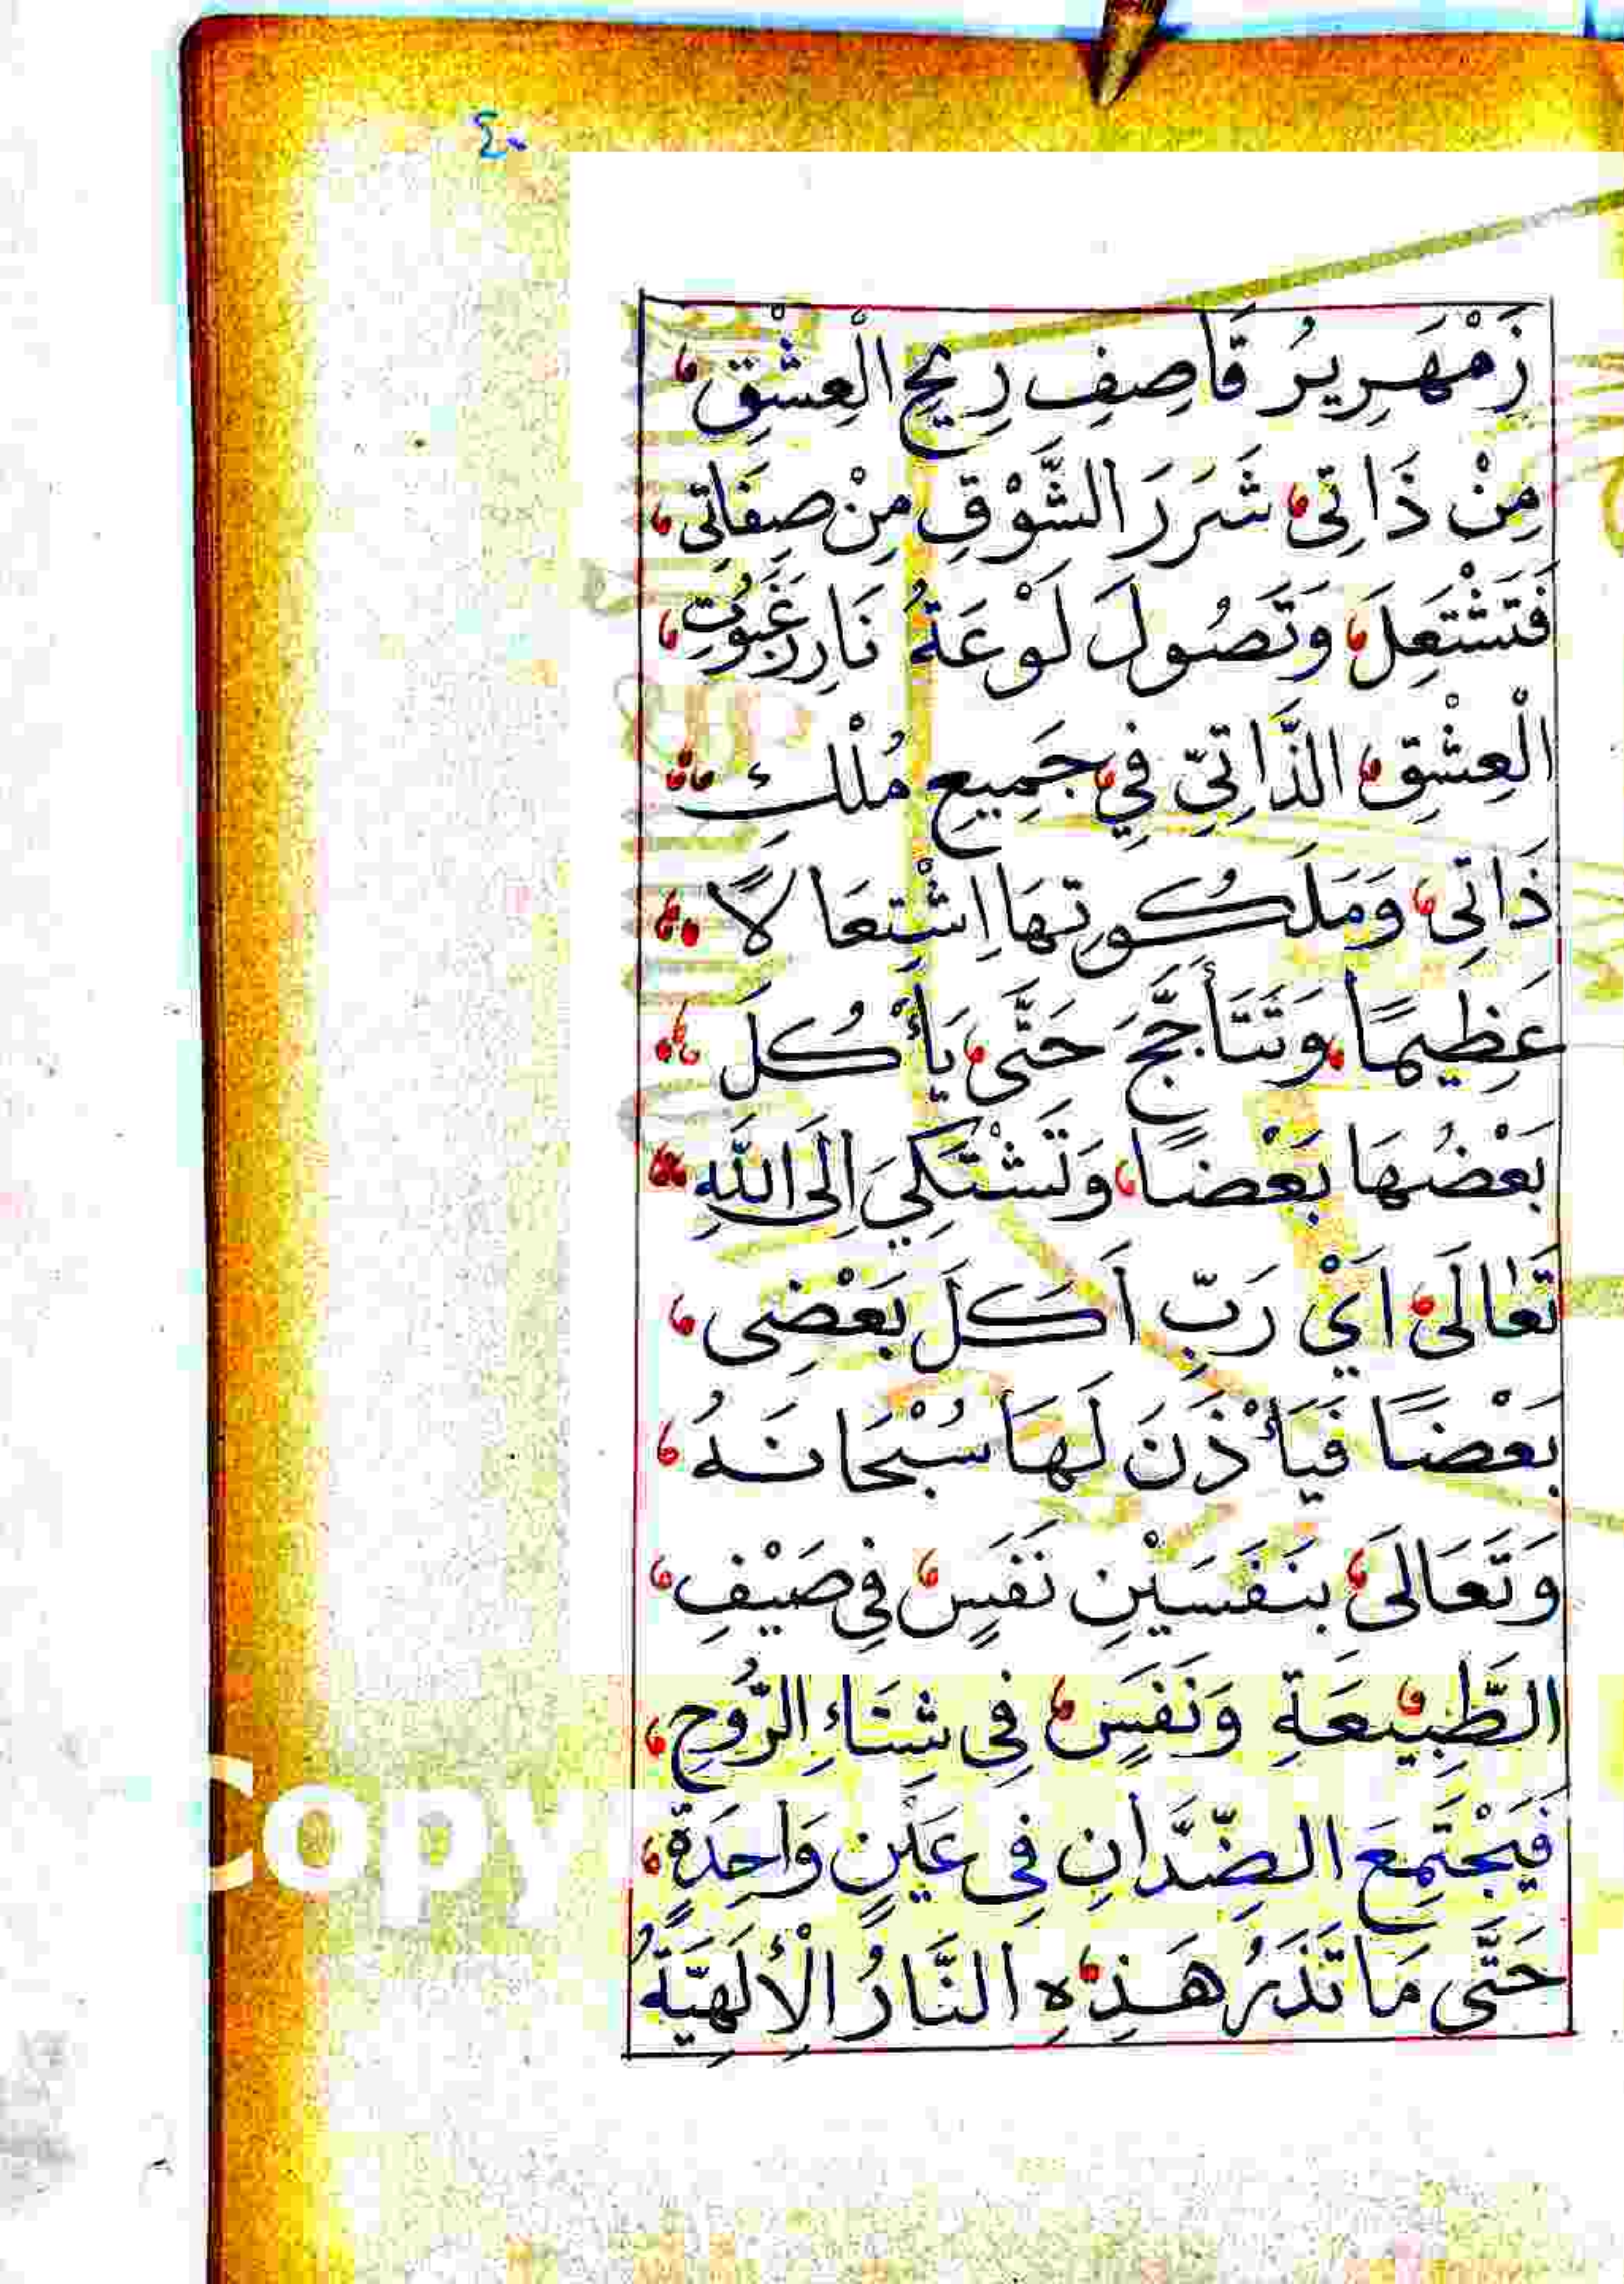 ٤٠
زَمْهَرِيرُ قَاصِفِ رِيحِ الْعِشْقِ،
مِنْ ذَاتِى، شَرَرَ الشَّوْقِ مِنْ صِفَاتِى،
فَتَشْتَعِلَ، وَتَصُولَ لَوْعَةُ نَارِ رَغَبُوتِ،
الْعِشْقِ، الذَّاتِيِّ فِي، جَمِيعِ مُلْكِ،
ذَاتِى، وَمَلَكُوتِهَا اِشْتِعَالًا،
عَظِيمًا، وَتَتَأَجَّجَ حَتَّى، يَأْكُلَ،
بَعْضُهَا بَعْضًا، وَتَشْتَكِيَ اِلَى اللّٰهِ،
تَعٰالَى، اَيْ رَبِّ اَكَلَ بَعْضِى،
بَعْضًا فَيَأْذَنَ لَهَا سُبْحَانَهُ،
وَتَعَالَى، بِنَفَسَيْنِ نَفَسٍ، فِى صَيْفِ،
الطَّبِيعَةِ وَنَفَسٍ، فِى شِتَاءِ الرُّوحِ،
فَيَجْتَمِعَ الضِّدَّانِ فِى عَيْنٍ وَاحِدَةٍ،
حَتَّى مَا تَذَرُ هَذِهِ النَّارُ الْأِلَهِيَّةُ
Copy